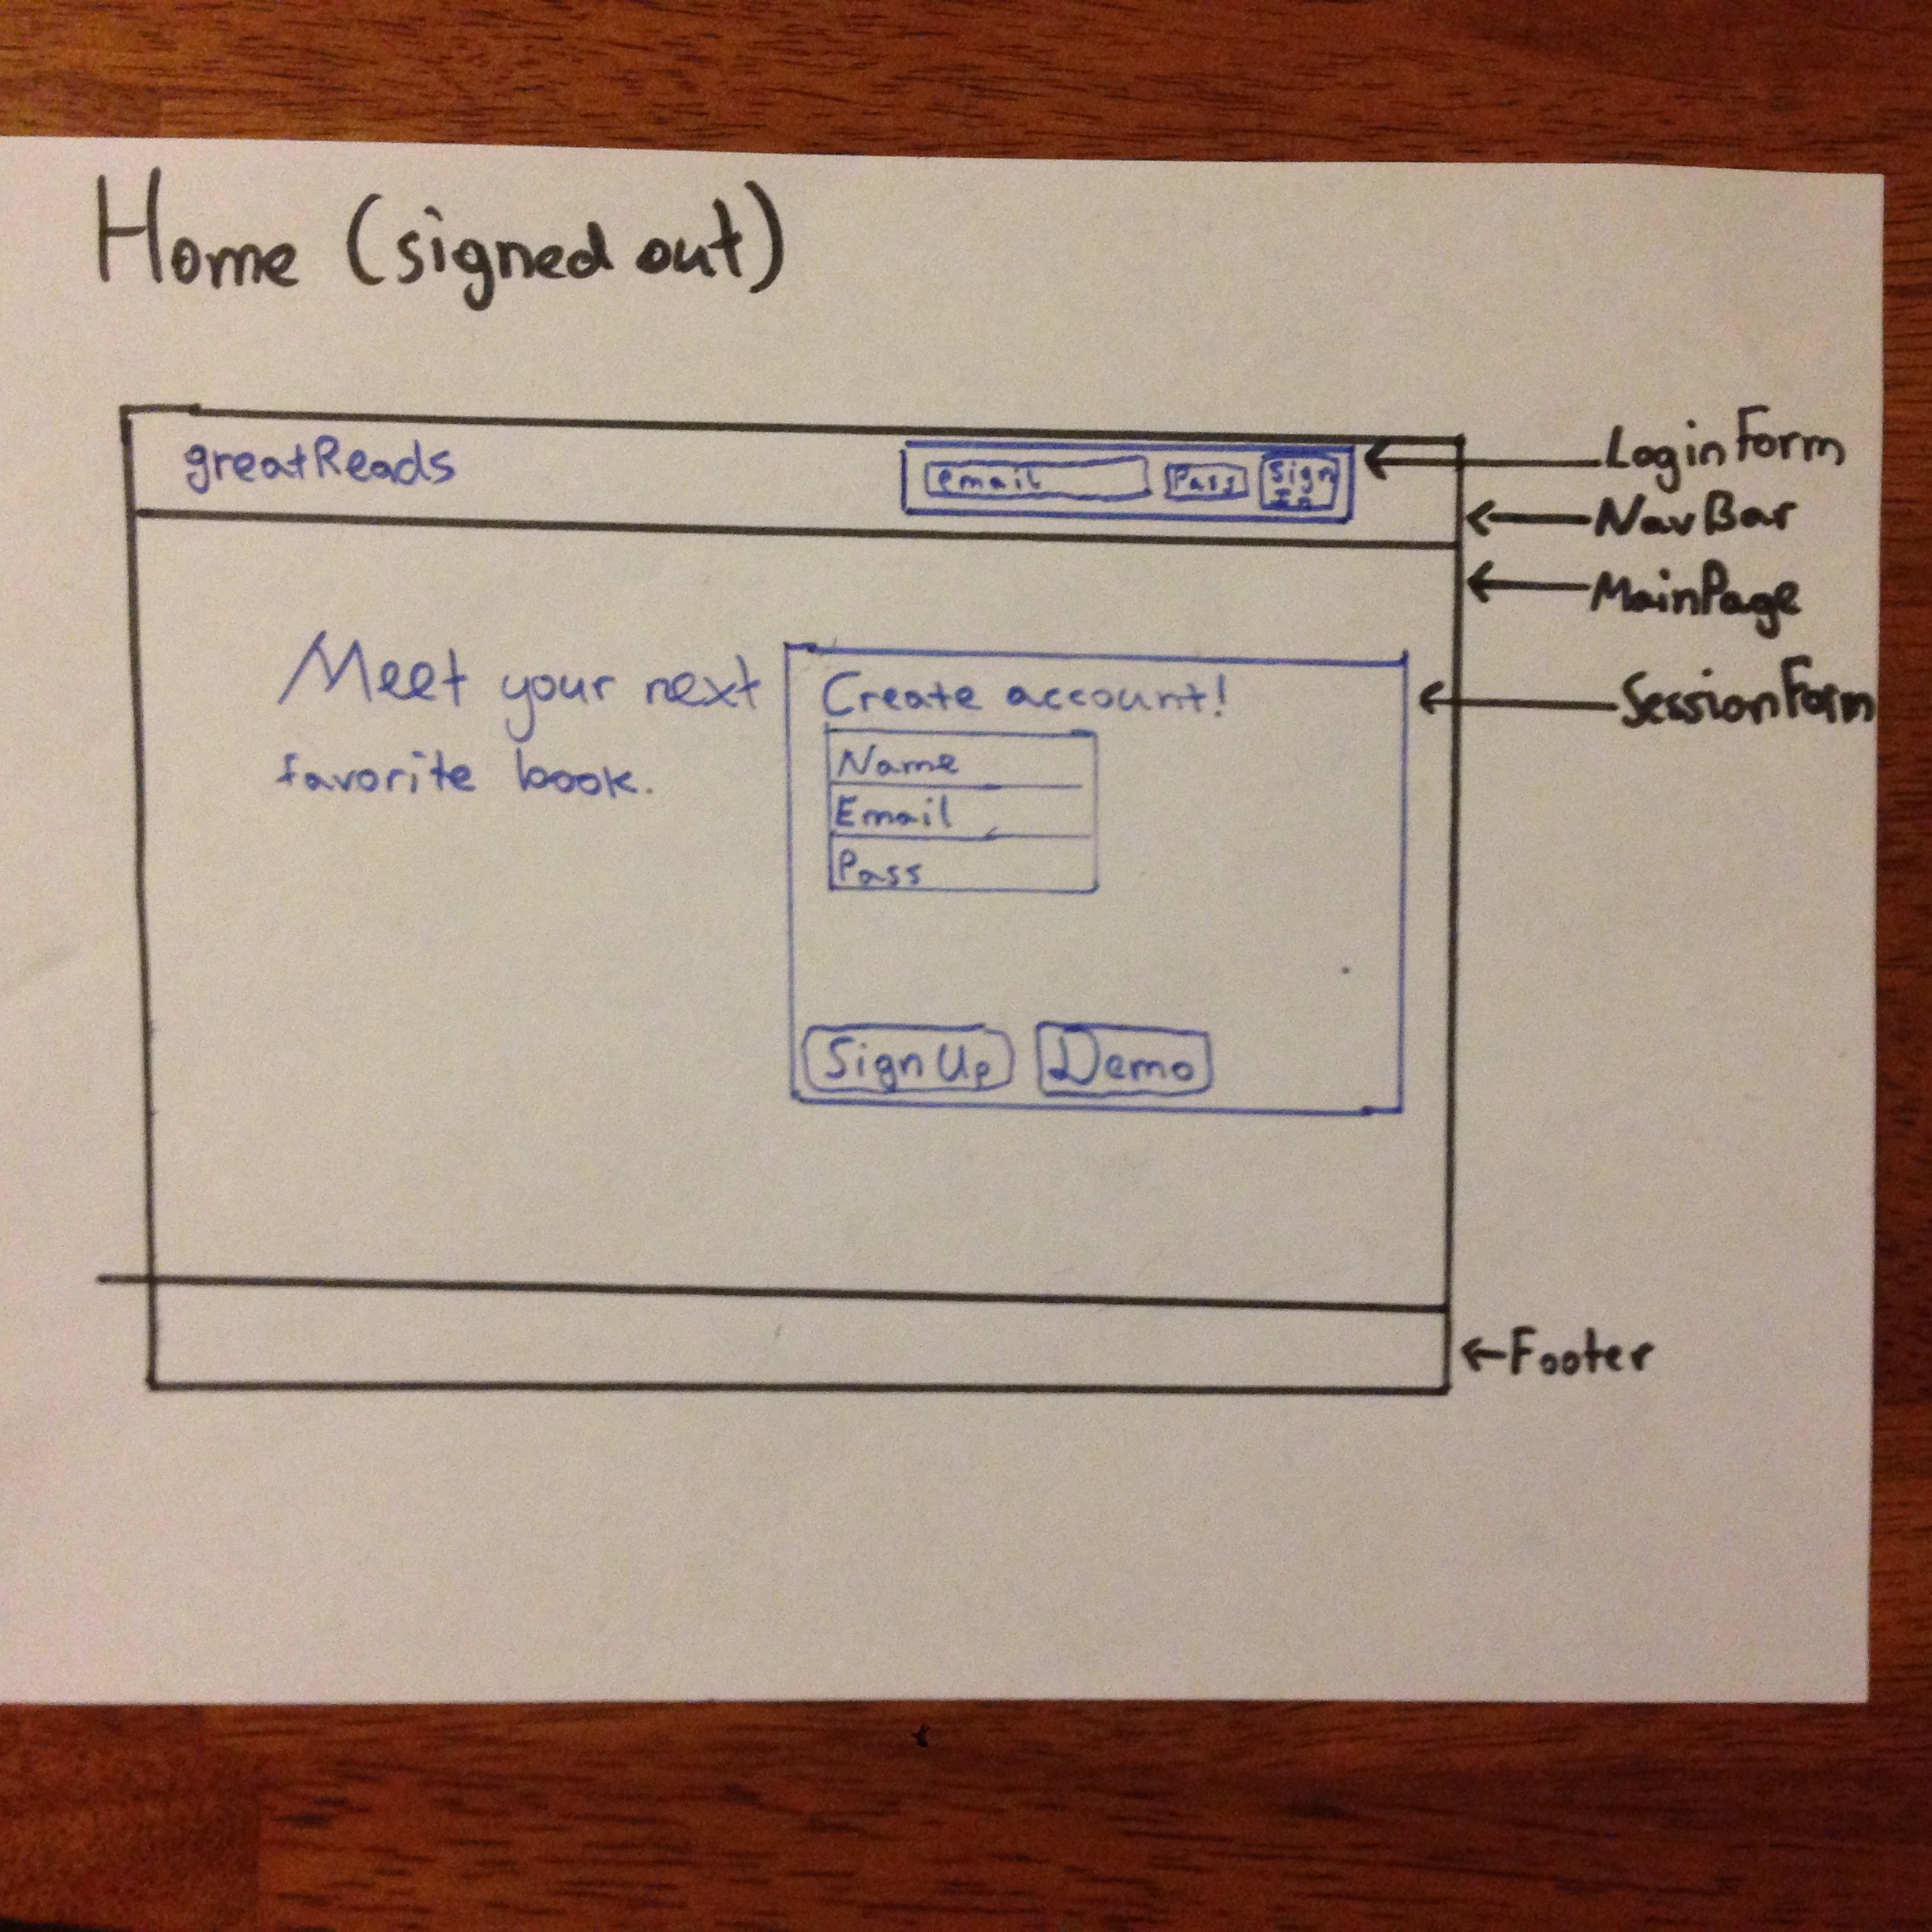 Home (signed out)
greatReads
email
Pass
Sign
In
LoginForm
NavBar
MainPage
Meet your next
favorite book.
Create account!
Name
Email
Pass
Sign Up
Demo
SessionForm
Footer